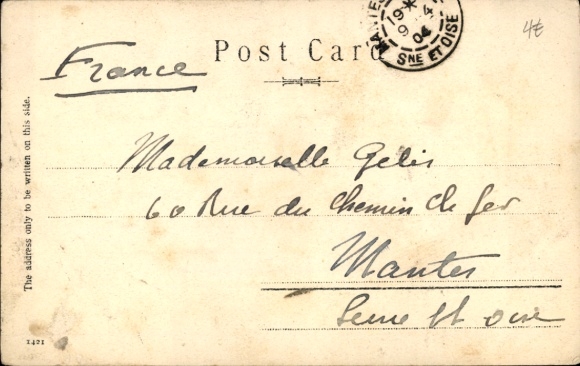 Post Card
France
MANTES
19 * 9-4 04
SNE ET OISE
4€
The address only to be written on this side.
Mademoiselle Gelis
60 Rue du Chemin de fer
Mantes
Seine et oise
1421